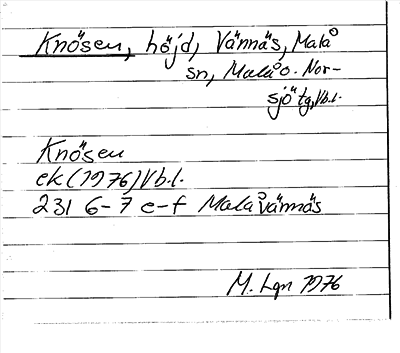 Knösen, höjd, Vännäs, Malå
sn, Malå o. Nor-
sjö tg, Vb.l.
Knösen
ek (1976) Vb.l.
231 6-7 e-f Malåvännäs
M. Lgn 1976